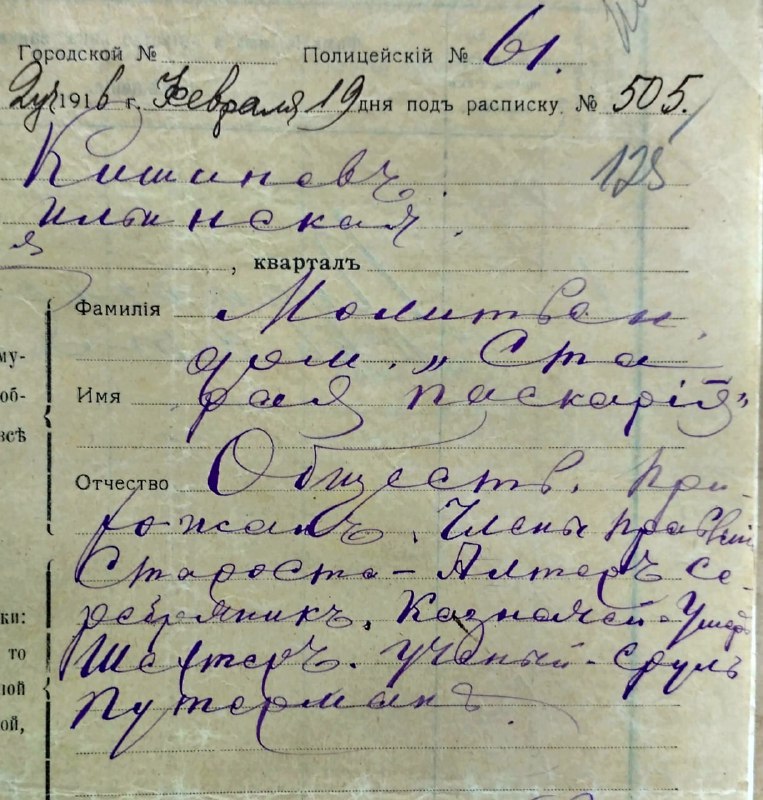 Городской № Полицейскій № 61.
1916 г. Февраля 19 дня подъ расписку № 505.
Кишиневъ. 125
Ильинская.
я
, кварталъ
Фамилія Молитвен.
му- дом. „Ста
об- Имя рая Паскарія“
всѣ
Отчество Обществ. При-
хожанъ. Члены правленія
Староста - Алтеръ Се-
ки: ребряникъ, Казначей - Ушеръ
то Шехтеръ. Ученый - Сруль
ной Путерманъ.
ой,